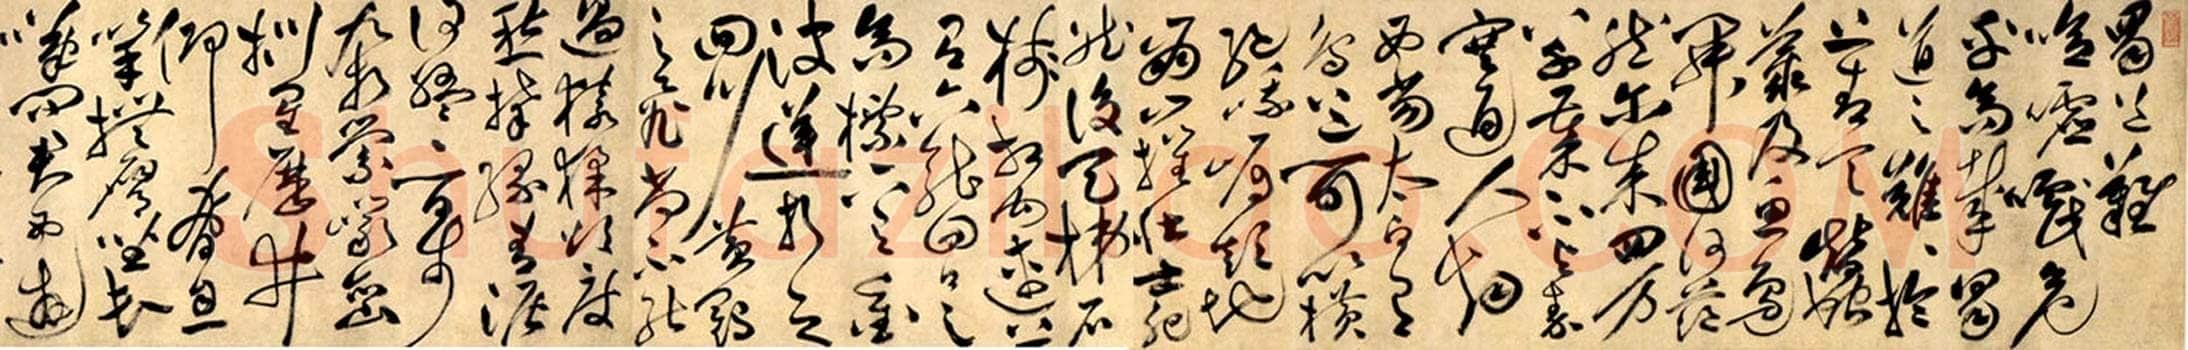 蜀道難
噫嘘嚱危
乎高哉蜀
道之難難於
上青天蠶
叢及魚鳧
開國何茫
然爾來四萬
八千歲不與秦
塞通人煙
西當太白有
鳥道可以橫
絕峨嵋巔地
崩山摧壯士死
然後天梯石
棧相鉤連上
有六龍回日之
高標下有衝
波逆折之
回川黃鶴
之飛尚不能
過猿猱欲度
愁攀緣青泥
何盤盤百步
九折縈巖巒
捫參歷井
仰脅息
以手撫膺坐長
嘆問君西遊
shufaziliao.COM